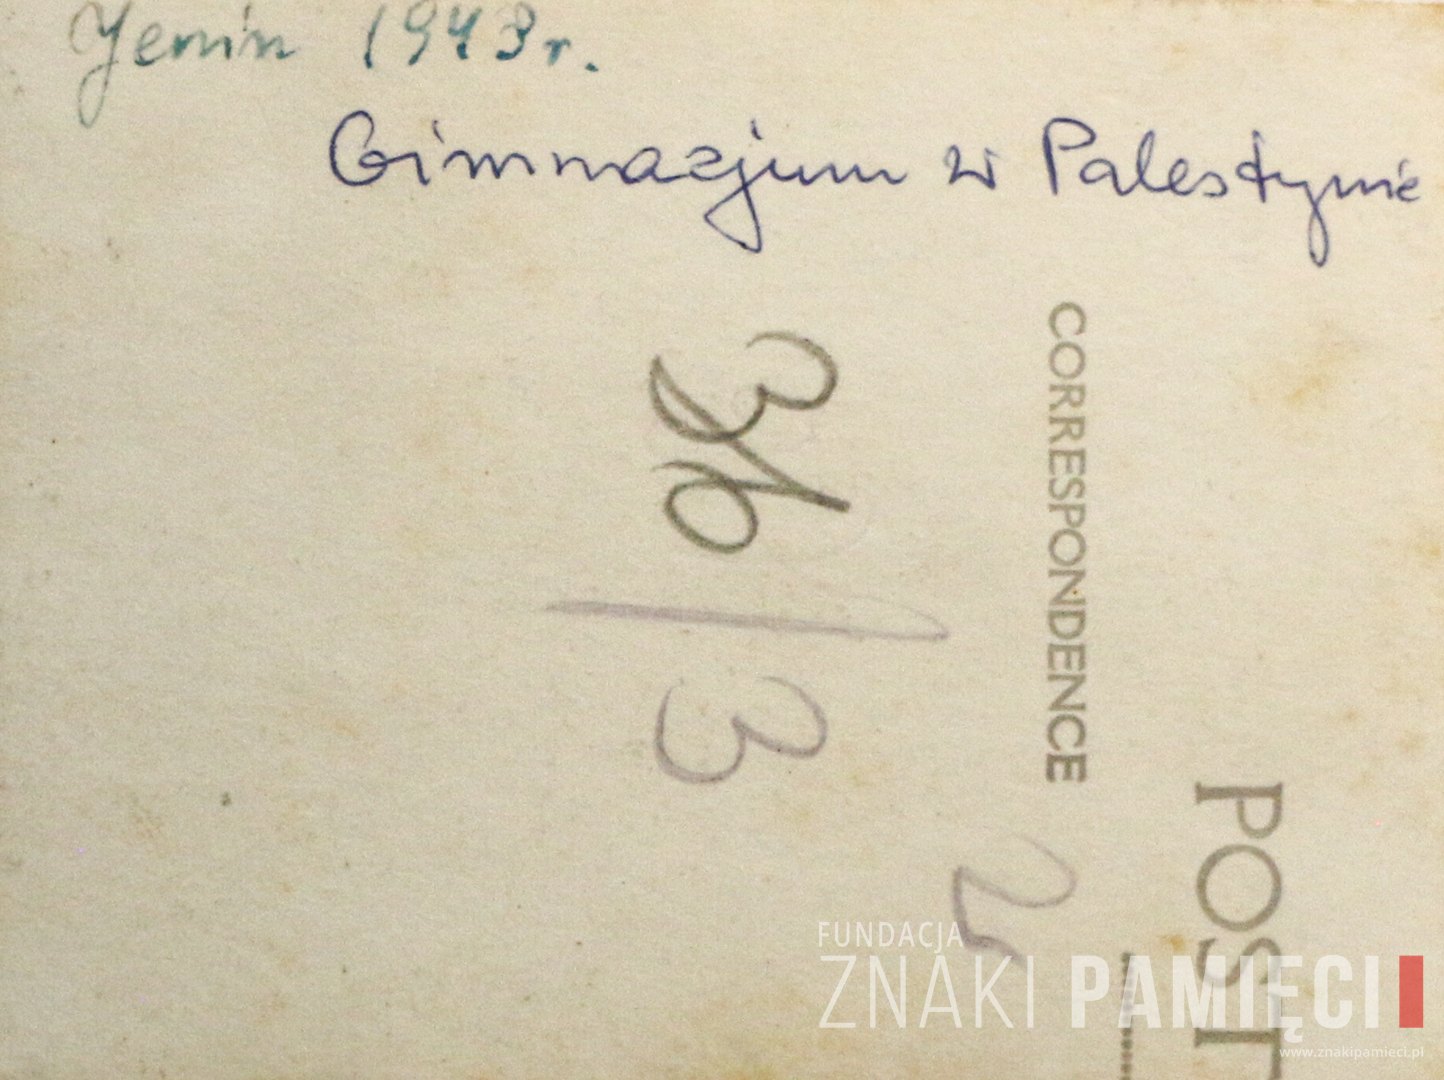 Jenin 1943 r.
Gimnazjum w Palestynie
CORRESPONDENCE
36/3
2
POST
FUNDACJA
ZNAKI PAMIĘCI
www.znakipamieci.pl